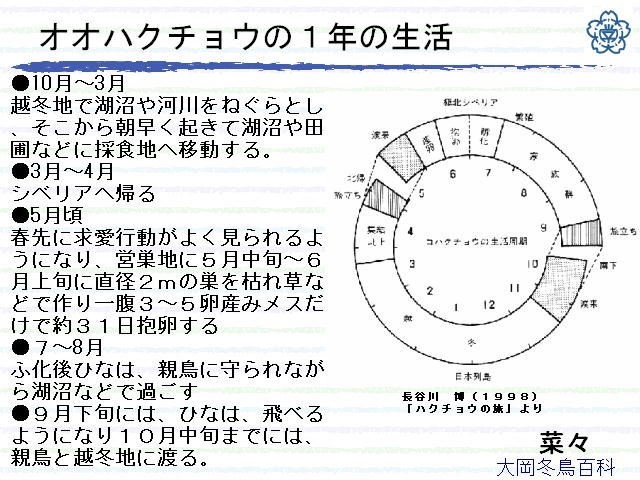 オオハクチョウの１年の生活
●10月～3月
越冬地で湖沼や河川をねぐらとし
、そこから朝早く起きて湖沼や田
圃などに採食地へ移動する。
●3月～4月
シベリアへ帰る
●5月頃
春先に求愛行動がよく見られるよ
うになり、営巣地に５月中旬～６
月上旬に直径２ｍの巣を枯れ草な
どで作り一腹３～５卵産みメスだ
けで約３１日抱卵する
●７～8月
ふ化後ひなは、親鳥に守られなが
ら湖沼などで過ごす
●９月下旬には、ひなは、飛べる
ようになり１０月中旬までには、
親鳥と越冬地に渡る。
極北シベリア
繁殖
渡来
産卵
抱卵
孵化
家
族
群
北帰
旅立ち
集結
北上
旅立ち
南下
渡来
越
冬
コハクチョウの生活周期
1
2
3
4
5
6
7
8
9
10
11
12
日本列島
長谷川　博（１９９８）
「ハクチョウの旅」より
菜々
大岡冬鳥百科